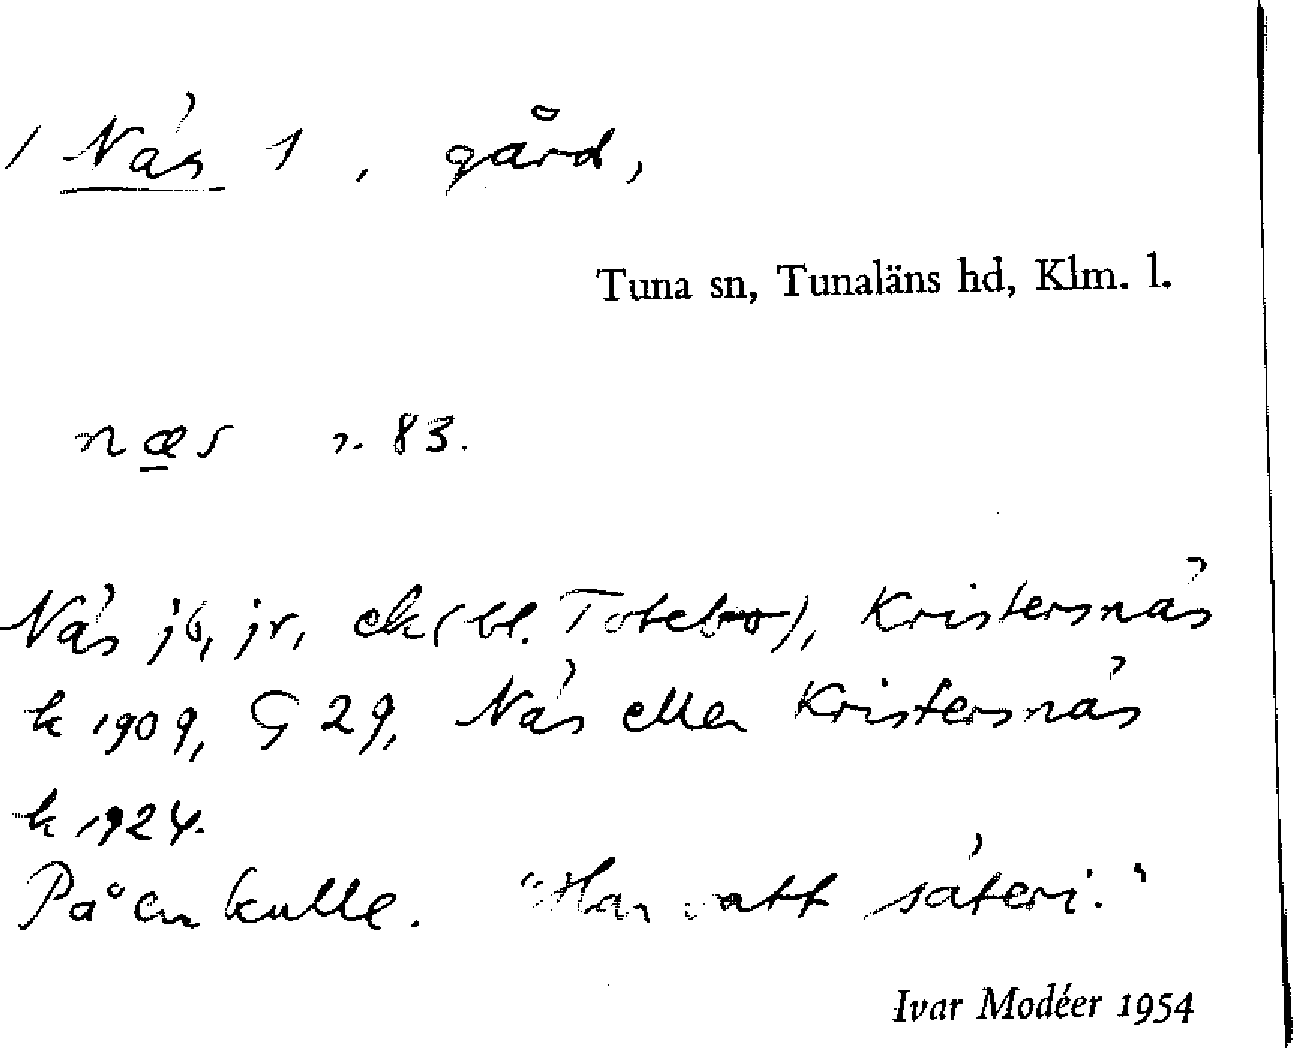 / Näs 1, gård,
Tuna sn, Tunaläns hd, Klm. l.
næs r. 83.
Näs jb, jr, ek (bl. Totebo), Kristersnäs
k 1909, G 29, Näs eller Kristersnäs
k 1924.
På en kulle. "Har vatt säteri."
Ivar Modéer 1954